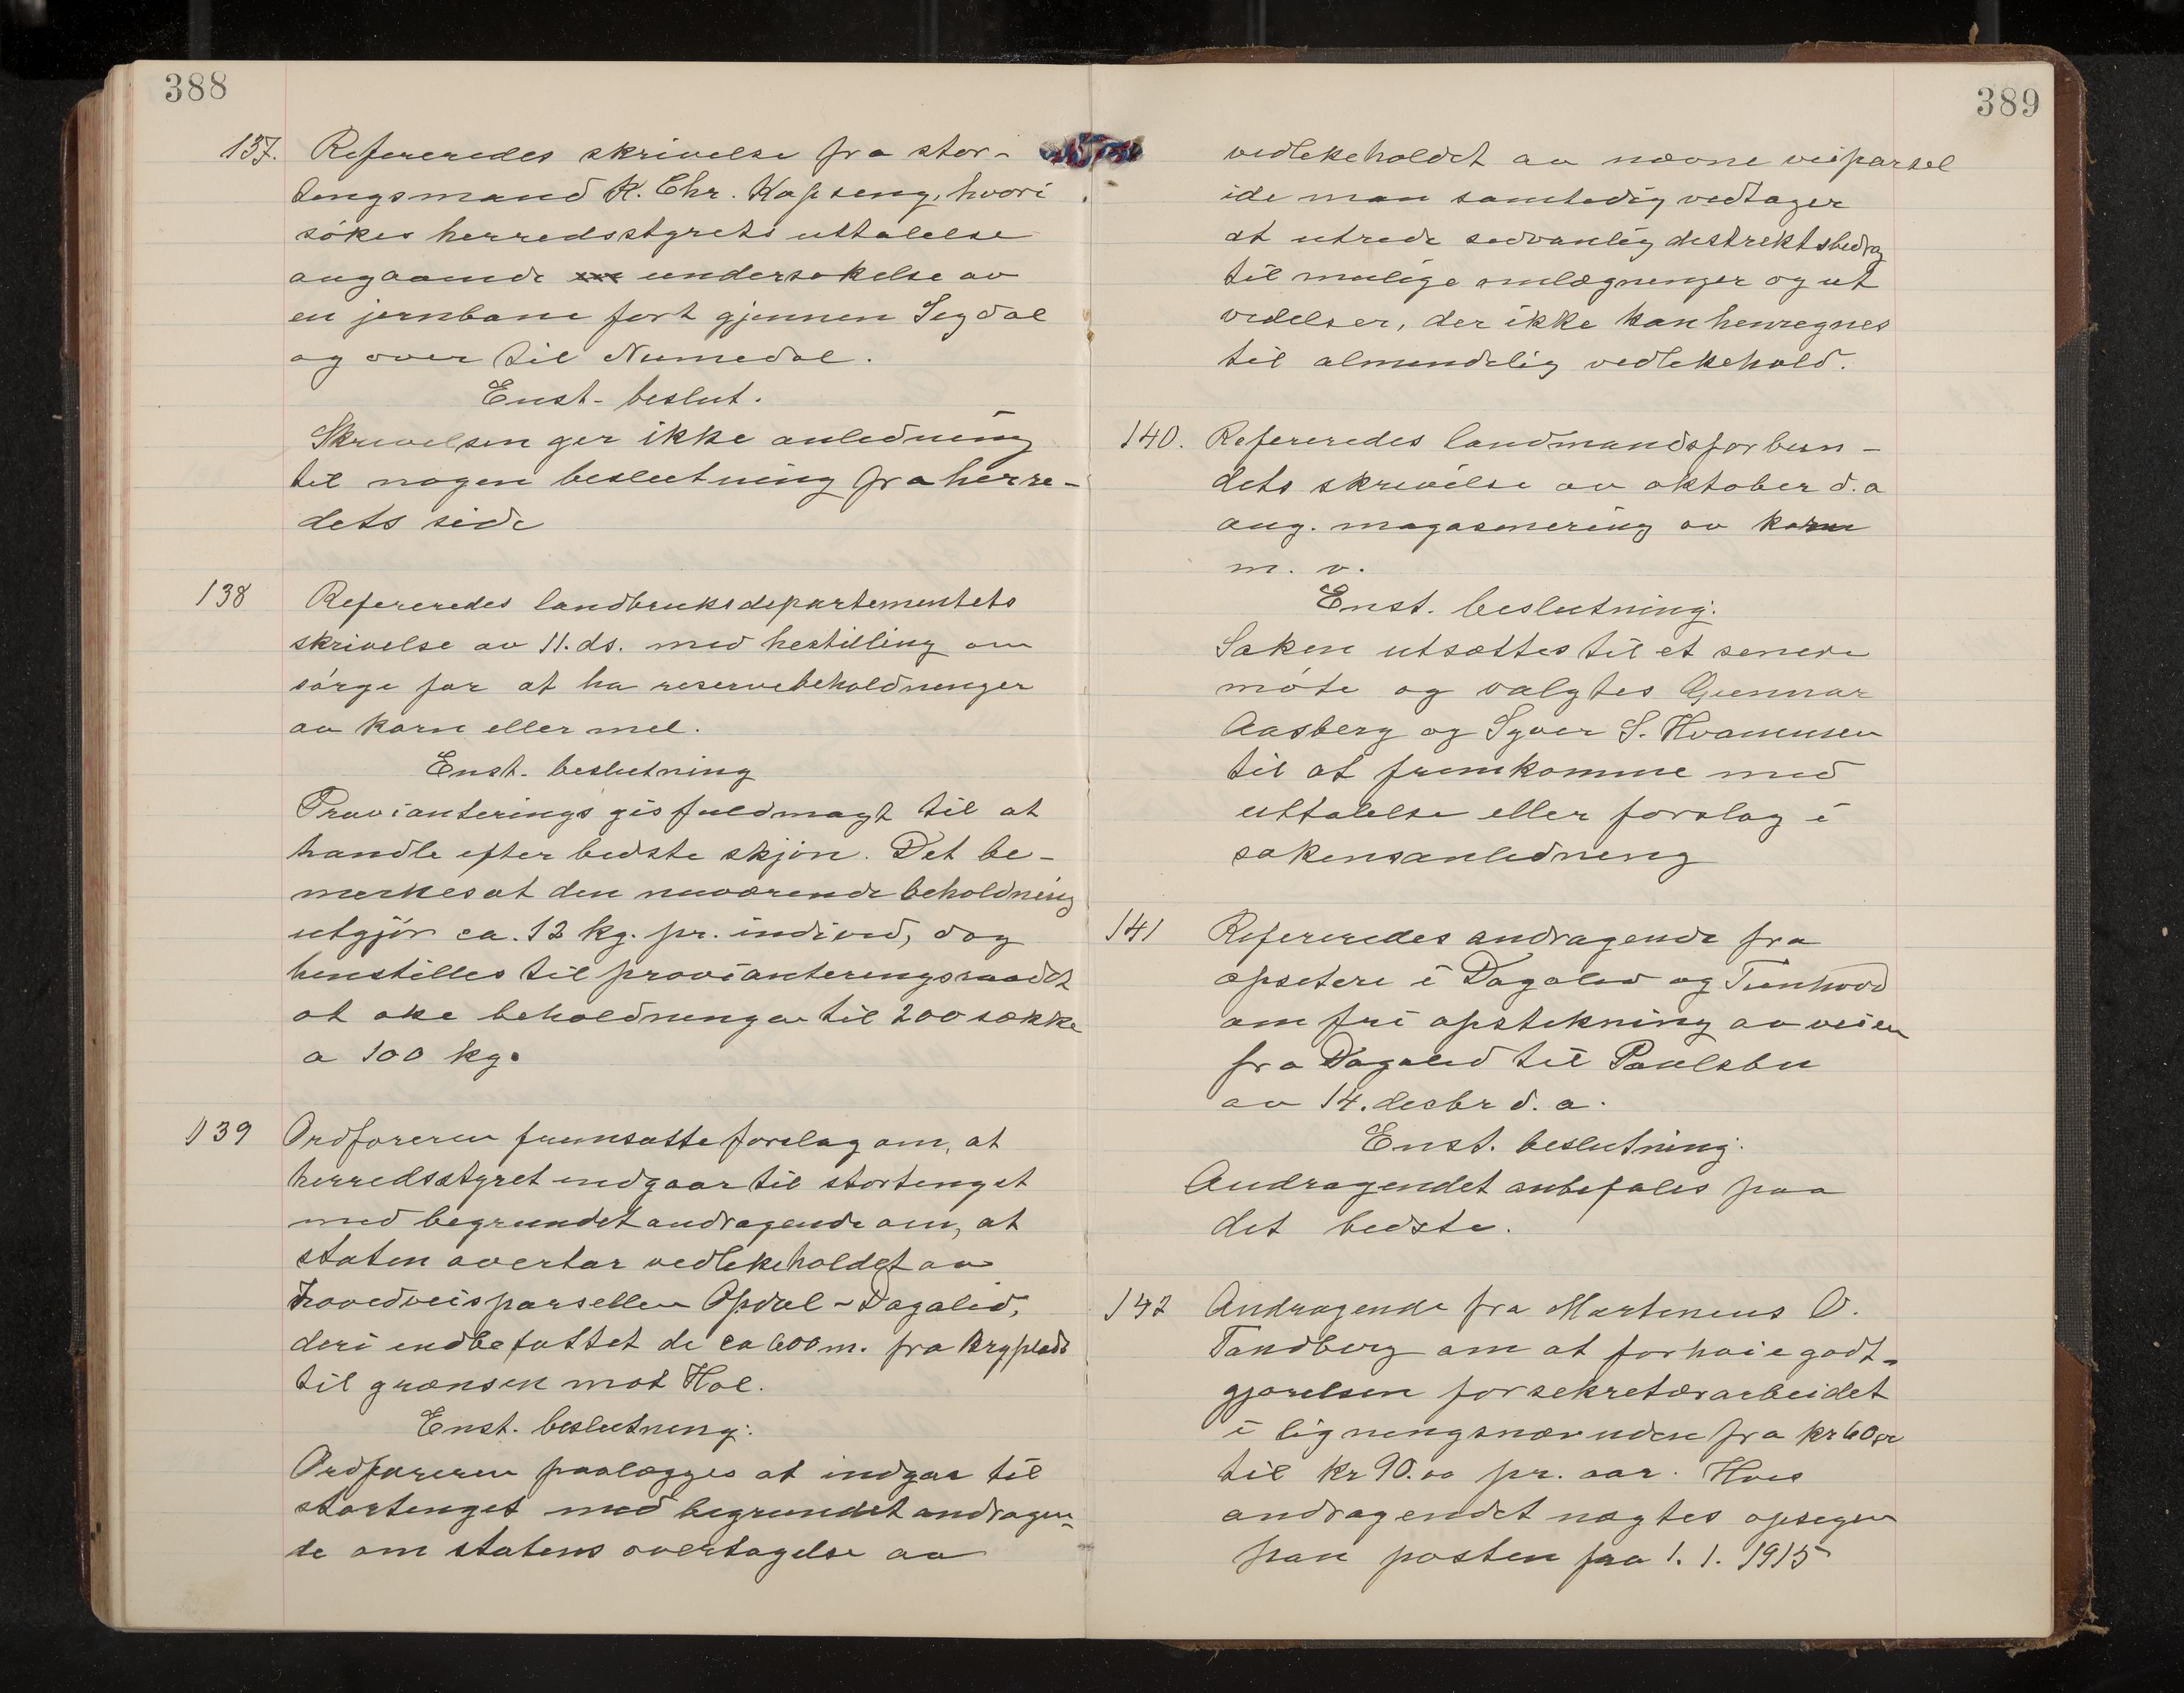 388
137. Refereredes skrivelse fra stor-
tingsmand K. Chr. Kopseng, hvori
søkes herredsstyrets uttalelse
angaaende undersøkelse av
en jernbane fort gjennem Sigdal
og over til Numedal.
Enst. beslut.
Skrivelsen ger ikke anledning
til nogen beslutning fra herre-
dets side
138 Refereredes landbruksdepartementets
skrivelse av 11. ds. med hestilling om
sørge for at ha reservebeholdninger
av korn eller mel.
Enst. beslutning
Provianterings gis fuldmagt til at
handle efter bedste skjøn. Det be-
merkes at den nuværende beholdning
utgjør ca. 12 kg. pr. individ, dog
henstilles til provianteringsraadet
at øke beholdningen til 200 sække
a 100 kg.
139 Ordføreren fremsatte forslag om, at
herredsstyret indgaar til stortinget
med begrundet andragende om, at
staten overtar vedlikeholdet av
hovedveisparsellen Opdal - Dagalid,
deri indbefattet de ca 600 m. fra Bryplads
til grænsen mot Hol.
Enst. beslutning:
Ordføreren paalægges at indgaa til
stortinget med begrundet andragen-
de om statens overtagelse av
389
vedlikeholdet av nævne veiparsel
ide man samtidig vedtager
at utrede sedvanlig distriktsbedrag
til mulige omlægninger og ut
videlser, der ikke kan henregnes
til almindelig vedlikehold.
140. Refereredes landmandsforbun-
dets skrivelse av oktober d. a
ang. magasinering av korn
m. v.
Enst. beslutning:
Saken utsættes til et senere
møte og valgtes Gunnar
Aasberg og Syver S. Hvammen
til at fremkomme med
uttalelse eller forslag i
sakens anledning
141 Refereredes andragende fra
opsittere i Dagalid og Tunhovd
om fri opstikning av veien
fra Dagalid til Paulsbu
av 14. desbr d. a.
Enst. beslutning:
Andragendet anbefales paa
det bedste.
142 Andragende fra Martinius O.
Tandberg om at forhøie godt-
gjørelsen for sekretærarbeidet
i ligningsnævnden fra kr 60,00
til kr 90.00 pr. aar. Hvis
andragendet nægtes opsiger
han posten fra 1. 1. 1915